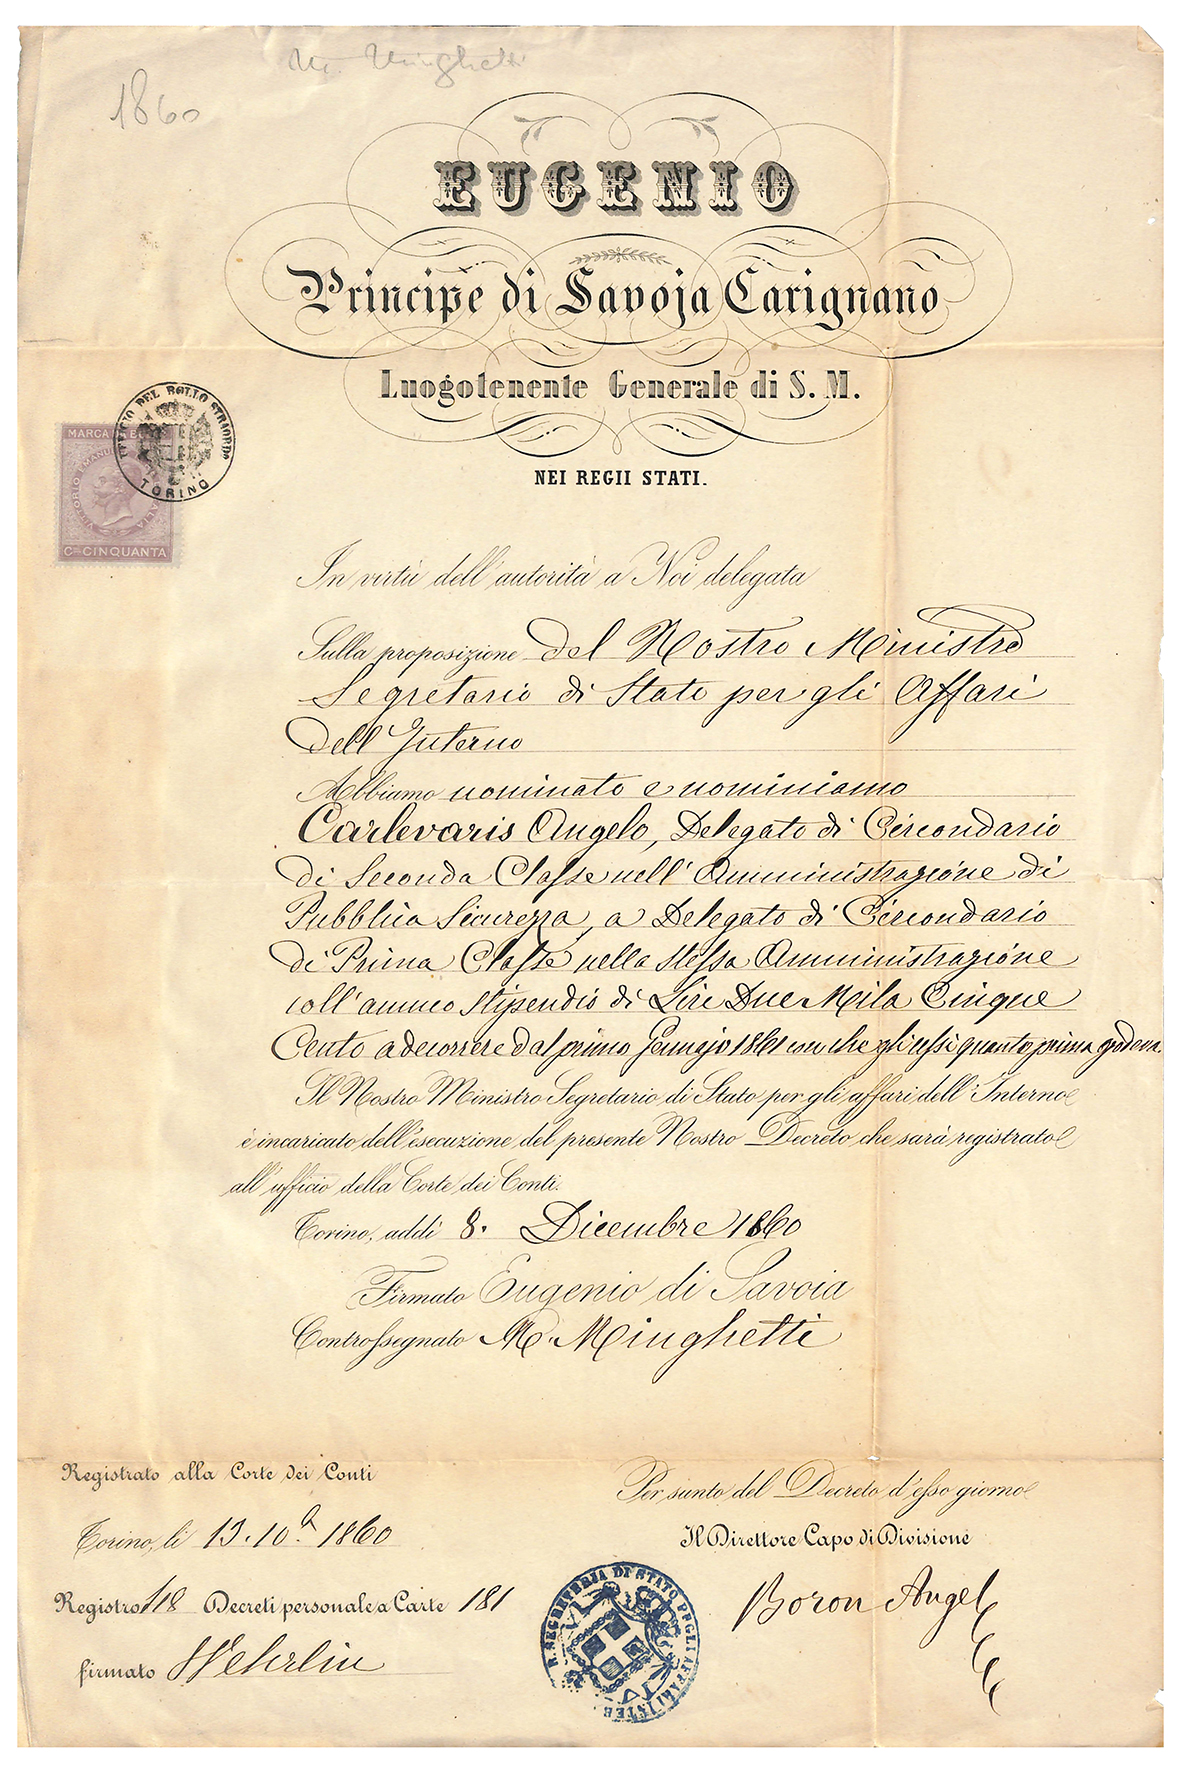 M. Minghetti
1860
EUGENIO
Principe di Savoja Carignano
Luogotenente Generale di S. M.
NEI REGII STATI.
UFFICIO DEL BOLLO STRAORD
TORINO
MARCA
VITTORIO EMANU
C.mi CINQUANTA
In virtù dell'autorità a Noi delegata
Sulla proposizione del Nostro Ministro
Segretario di Stato per gli Affari
dell'Interno
Abbiamo nominato e nominiamo
Carlevaris Angelo, Delegato di Circondario
di Seconda Classe nell'Amministrazione di
Pubblica Sicurezza, a Delegato di Circondario
di Prima Classe nella stessa Amministrazione
coll'annuo stipendio di Lire Due Mila Cinque
Cento a decorrere dal primo Gennajo 1861 con che gli cessi quanto prima godeva.
Il Nostro Ministro Segretario di Stato per gli affari dell'Interno
è incaricato dell'esecuzione del presente Nostro Decreto che sarà registrato
all'ufficio della Corte dei Conti.
Torino, addì 8. Dicembre 1860
Firmato Eugenio di Savoia
Controssegnato M. Minghetti
Registrato alla Corte dei Conti
Torino, li 13. 10.a 1860
Registro 118 Decreti personale a Carte 181
firmato Wehrlin
Per sunto del Decreto d'esso giorno
Il Direttore Capo di Divisione
Boron Angel
R. SEGRETERIA DI STATO PEGLI AFFARI INTER